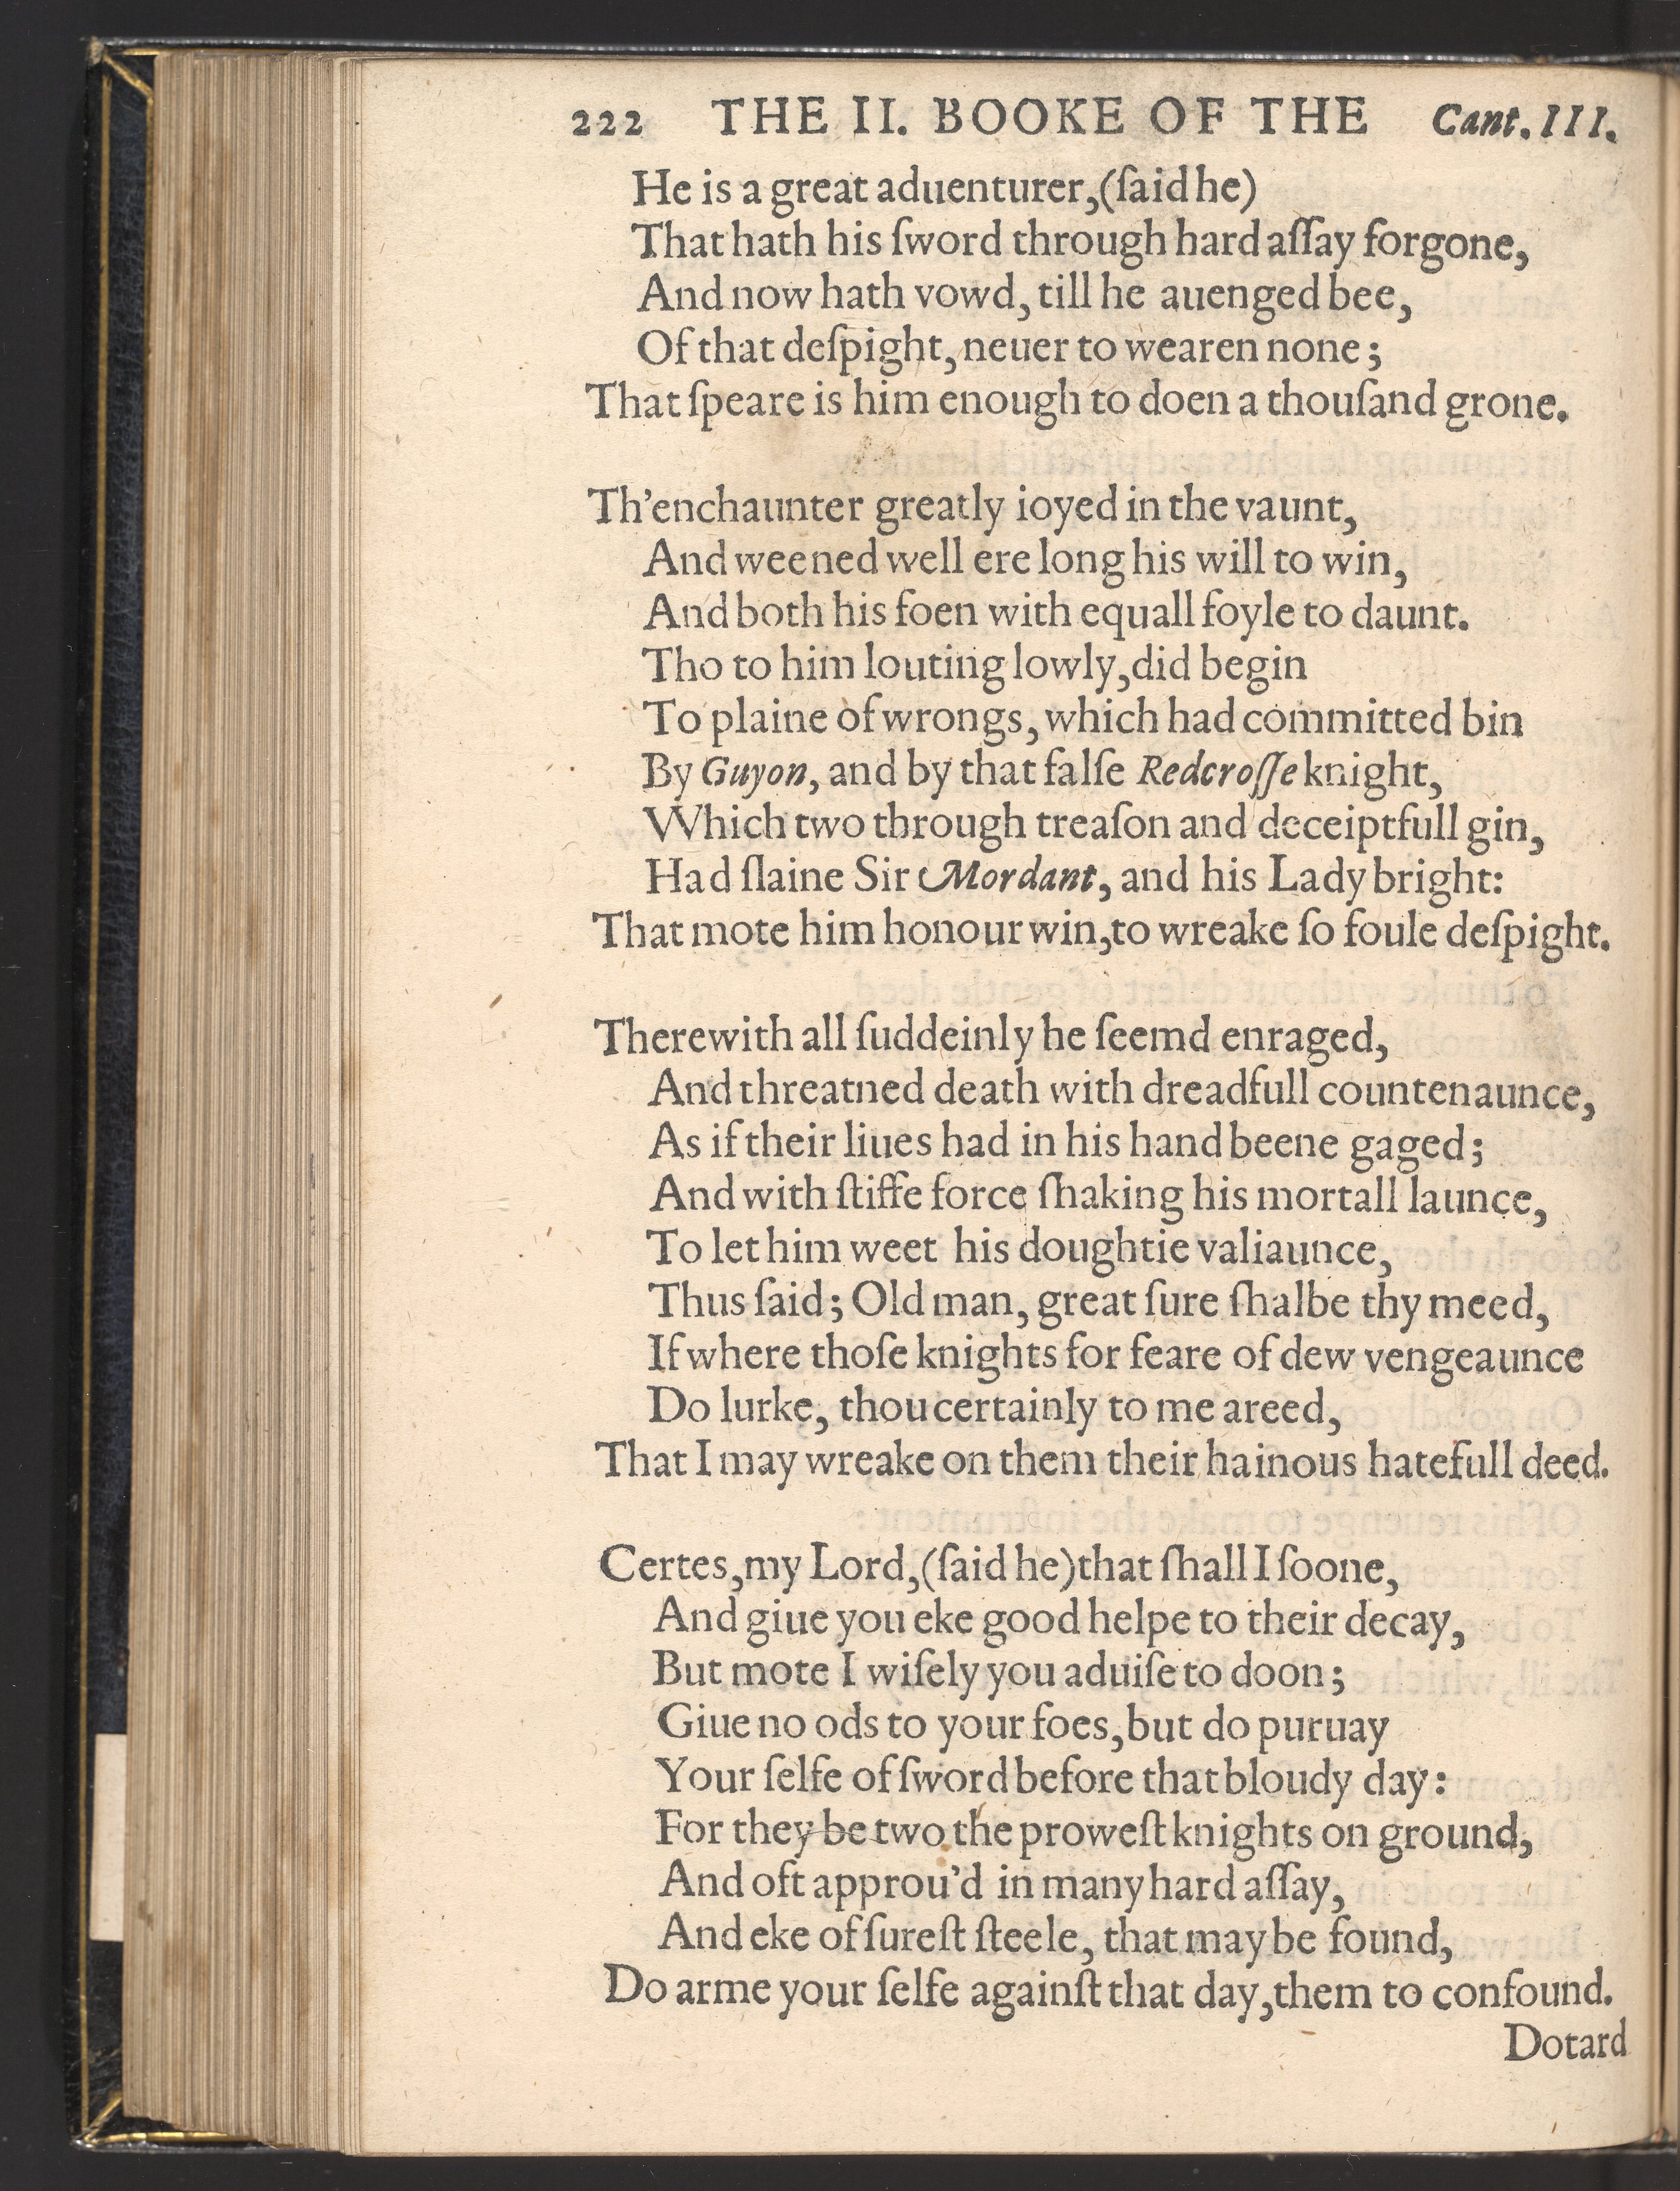 222 THE II. BOOKE OF THE Cant. III.
He is a great aduenturer, (ſaid he)
That hath his ſword through hard aſſay forgone,
And now hath vowd, till he auenged bee,
Of that deſpight, neuer to wearen none;
That ſpeare is him enough to doen a thouſand grone.
Th'enchaunter greatly ioyed in the vaunt,
And weened well ere long his will to win,
And both his foen with equall foyle to daunt.
Tho to him louting lowly, did begin
To plaine of wrongs, which had committed bin
By Guyon, and by that falſe Redcroſſe knight,
Which two through treaſon and deceiptfull gin,
Had ſlaine Sir Mordant, and his Lady bright:
That mote him honour win, to wreake ſo foule deſpight.
Therewith all ſuddeinly he ſeemd enraged,
And threatned death with dreadfull countenaunce,
As if their liues had in his hand beene gaged;
And with ſtiffe force ſhaking his mortall launce,
To let him weet his doughtie valiaunce,
Thus ſaid; Old man, great ſure ſhalbe thy meed,
If where thoſe knights for feare of dew vengeaunce
Do lurke, thou certainly to me areed,
That I may wreake on them their hainous hatefull deed.
Certes, my Lord, (ſaid he) that ſhall I ſoone,
And giue you eke good helpe to their decay,
But mote I wiſely you aduiſe to doon;
Giue no ods to your foes, but do puruay
Your ſelfe of ſword before that bloudy day:
For they be two the proweſt knights on ground,
And oft approu'd in many hard aſſay,
And eke of ſureſt ſteele, that may be found,
Do arme your ſelfe againſt that day, them to confound.
Dotard